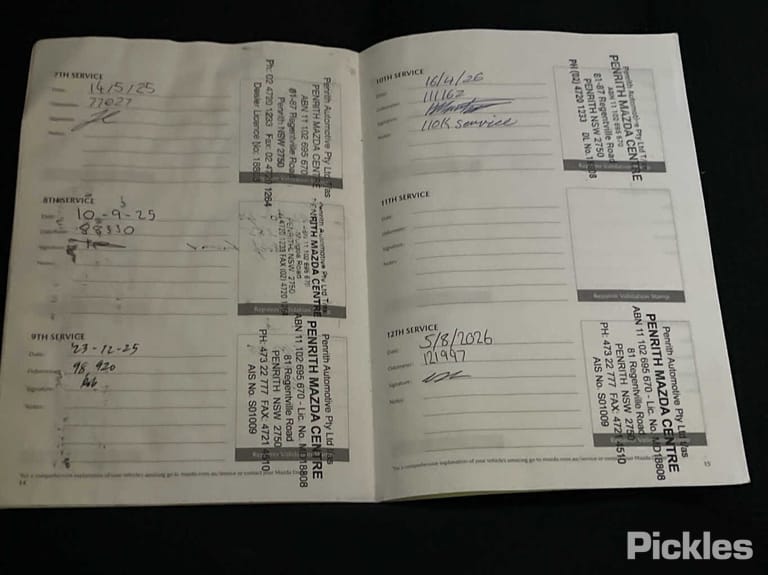 7TH SERVICE
Date: 14/5/25
77027
Penrith Automotive Pty Ltd T/as
PENRITH MAZDA CENTRE
ABN 11 102 695 670
81-87 Regentville Road
Penrith NSW 2750
Ph: 02 4720 1233 Fax: 02 4720 1264
Repairer Validation
8TH SERVICE
10-9-25
88330
Penrith Automotive Pty Ltd T/as
PENRITH MAZDA CENTRE
ABN 11 102 695 670
PENRITH, NSW 2750
Repairer Validation
9TH SERVICE
Date: 23-12-25
Odometer: 98,920
Signature:
Notes:
Penrith Automotive Pty Ltd T/as
PENRITH MAZDA CENTRE
ABN 11 102 695 670 - Lic. No. MD18808
81 Regentville Road
PENRITH NSW 2750
PH: 473 22 777 FAX: 4721 4510
AIS No. S01009
Repairer Validation
14
10TH SERVICE
Date: 16/4/26
Odometer: 111162
Signature:
Notes: 110K service
Penrith Automotive Pty Ltd T/as
PENRITH MAZDA CENTRE
ABN 11 102 695 670
81-87 Regentville Road
PENRITH NSW 2750
PH (02) 4720 1233 DL No.18808
11TH SERVICE
Date:
Odometer:
Signature:
Notes:
Repairer Validation Stamp
12TH SERVICE
Date: 5/8/2026
Odometer: 121997
Signature:
Notes:
Penrith Automotive Pty Ltd T/as
PENRITH MAZDA CENTRE
ABN 11 102 695 670 - Lic. No. MD18808
81 Regentville Road
PENRITH NSW 2750
PH: 473 22 777 FAX: 4721 4510
AIS No. S01009
Repairer Validation
For a comprehensive explanation of your vehicle's servicing go to mazda.com.au/service or contact your Mazda
15
Pickles